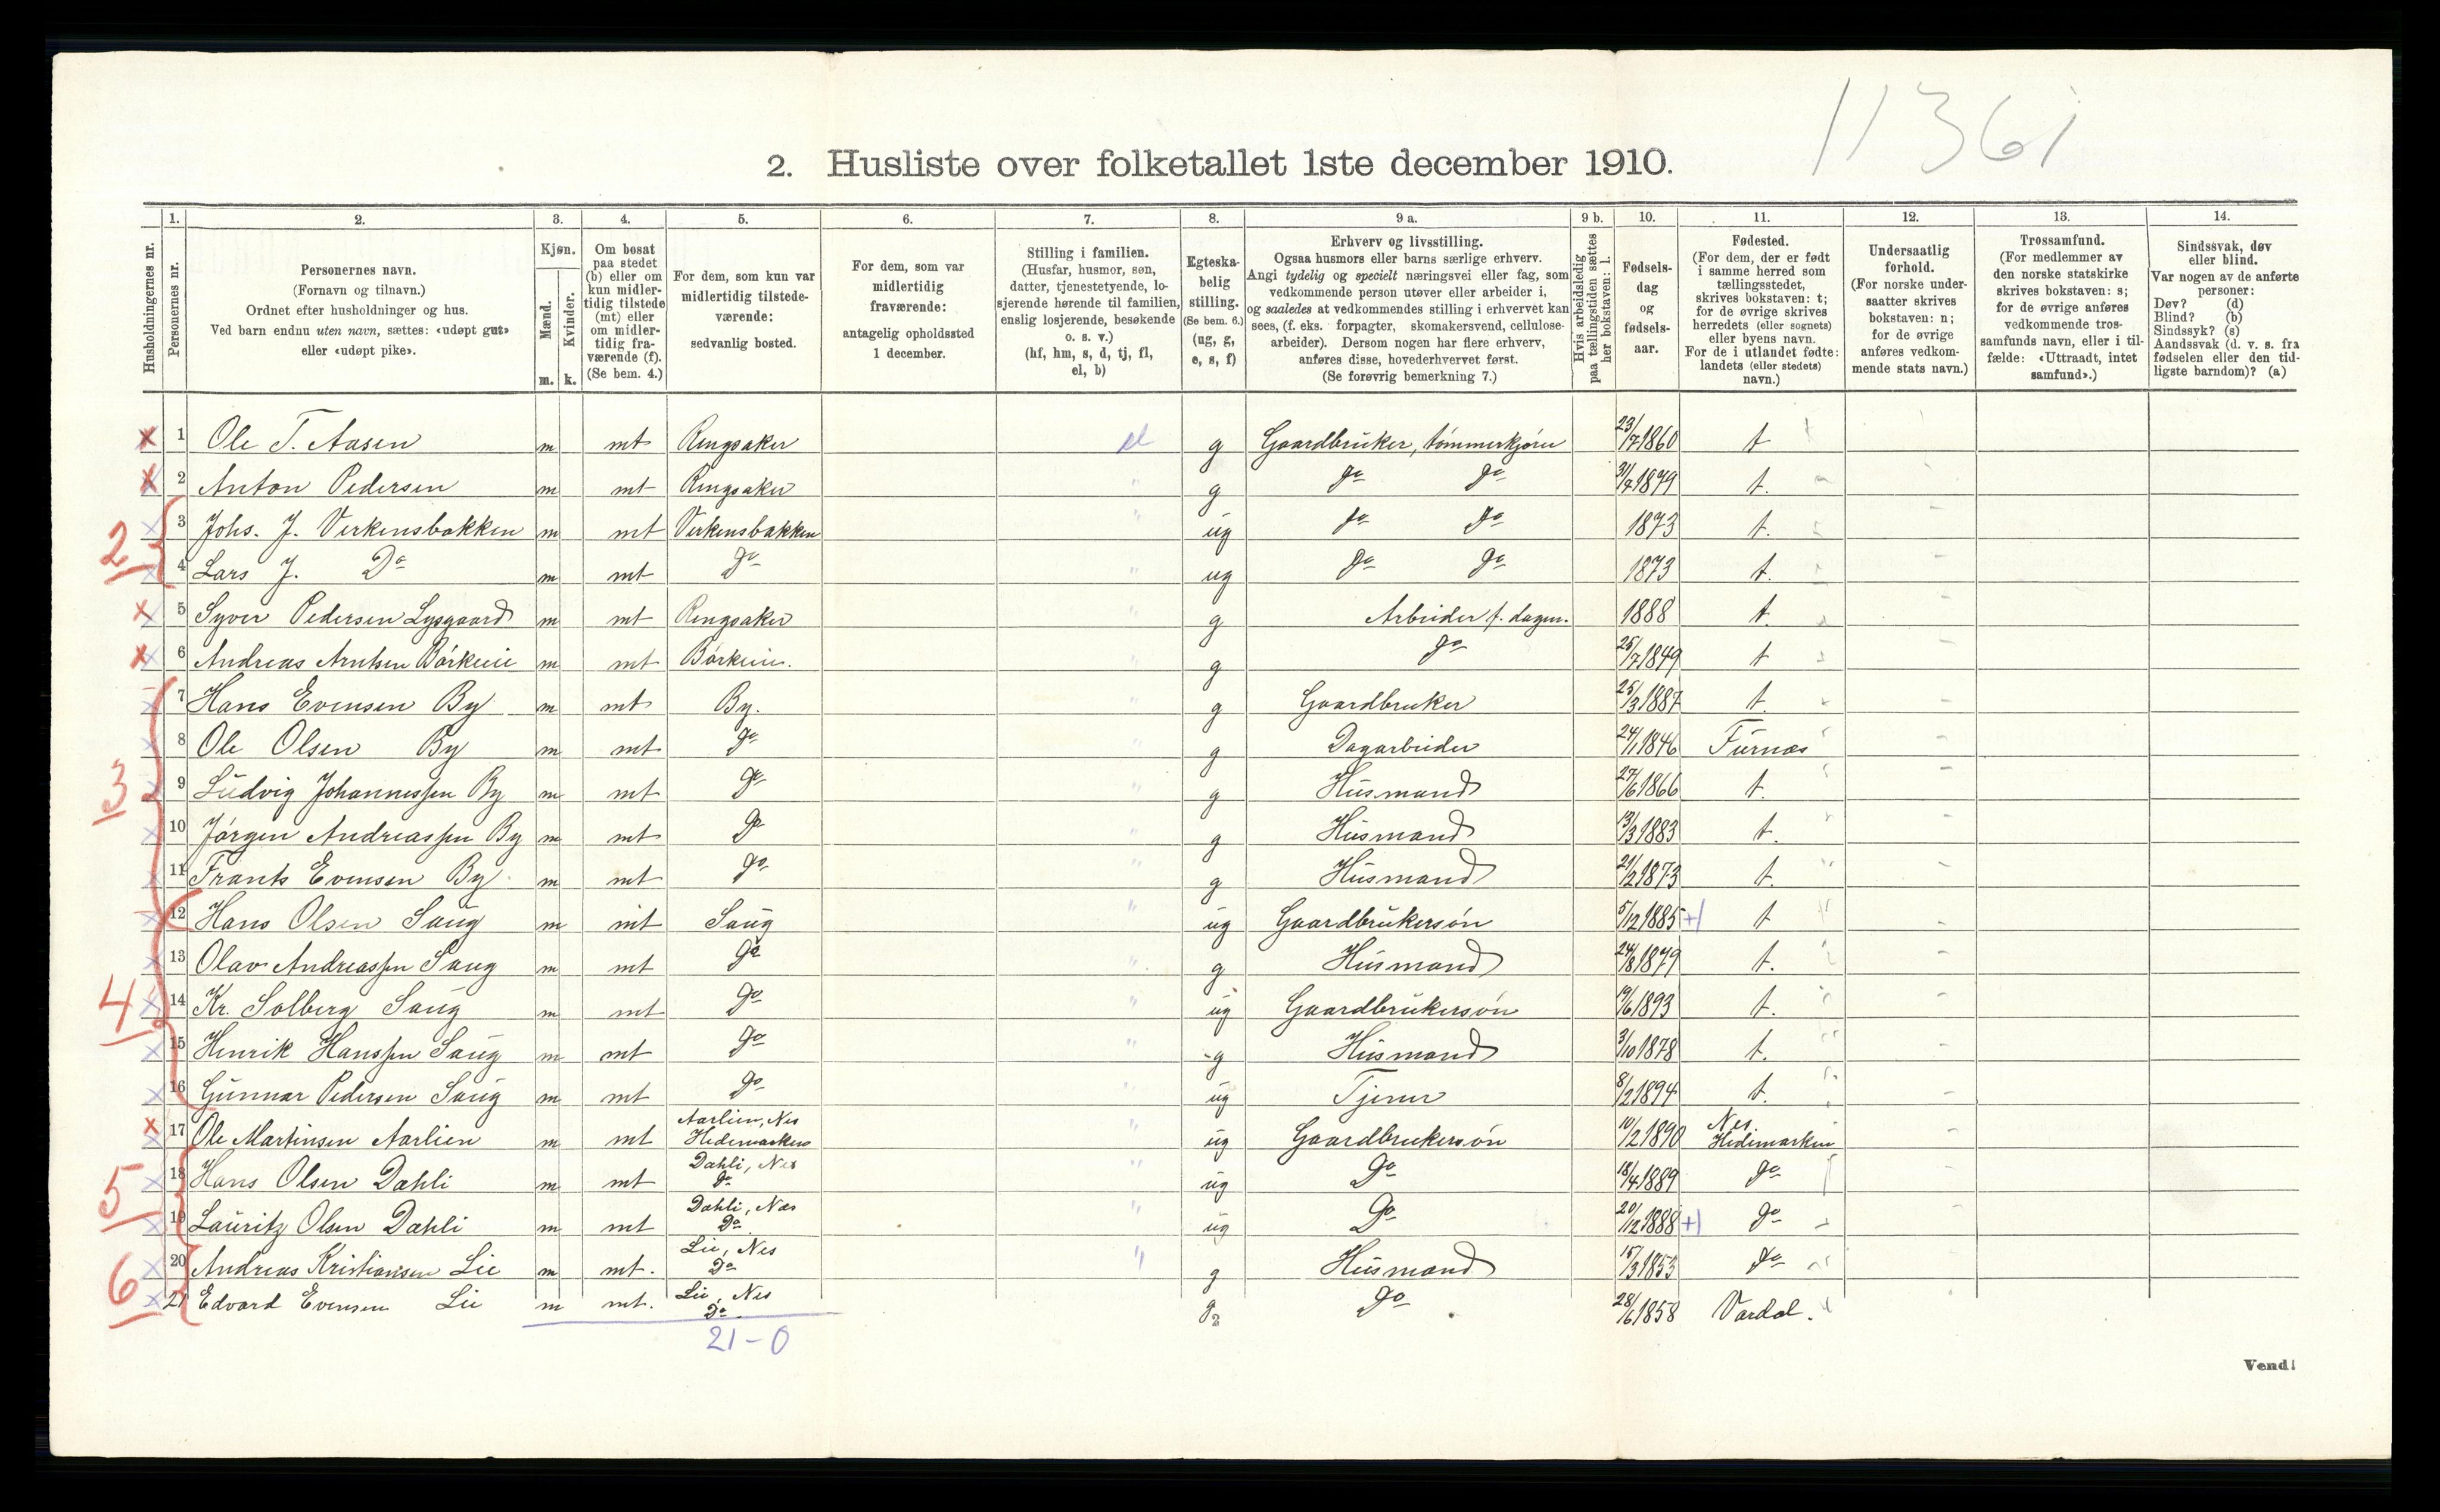 11361
2. Husliste over folketallet 1ste december 1910.
Husholdningernes nr.
1.
Personernes nr.
2.
Personernes navn.
(Fornavn og tilnavn.)
Ordnet efter husholdninger og hus.
Ved barn endnu uten navn, sættes: «udøpt gut»
eller «udøpt pike».
3.
Kjøn.
Mænd.
Kvinder.
m. k.
4.
Om bosat
paa stedet
(b) eller om
kun midler-
tidig tilstede
(mt) eller
om midler-
tidig fra-
værende (f).
(Se bem. 4.)
5.
For dem, som kun var
midlertidig tilstede-
værende:
sedvanlig bosted.
6.
For dem, som var
midlertidig
fraværende:
antagelig opholdssted
1 december.
7.
Stilling i familien.
(Husfar, husmor, søn,
datter, tjenestetyende, lo-
sjerende hørende til familien,
enslig losjerende, besøkende
o. s. v.)
(hf, hm, s, d, tj, fl,
el, b)
8.
Egteska-
belig
stilling.
(Se bem. 6.)
(ug, g,
e, s, f)
9 a.
Erhverv og livsstilling.
Ogsaa husmors eller barns særlige erhverv.
Angi tydelig og specielt næringsvei eller fag, som
vedkommende person utøver eller arbeider i,
og saaledes at vedkommendes stilling i erhvervet kan
sees, (f. eks. forpagter, skomakersvend, cellulose-
arbeider). Dersom nogen har flere erhverv,
anføres disse, hovederhvervet først.
(Se forøvrig bemerkning 7.)
9 b.
Hvis arbeidsledig
paa tællingstiden sættes
her bokstaven: l.
10.
Fødsels-
dag
og
fødsels-
aar.
11.
Fødested.
(For dem, der er født
i samme herred som
tællingsstedet,
skrives bokstaven: t;
for de øvrige skrives
herredets (eller sognets)
eller byens navn.
For de i utlandet fødte:
landets (eller stedets)
navn.)
12.
Undersaatlig
forhold.
(For norske under-
saatter skrives
bokstaven: n;
for de øvrige
anføres vedkom-
mende stats navn.)
13.
Trossamfund.
(For medlemmer av
den norske statskirke
skrives bokstaven: s;
for de øvrige anføres
vedkommende tros-
samfunds navn, eller i til-
fælde: «Uttraadt, intet
samfund».)
14.
Sindssvak, døv
eller blind.
Var nogen av de anførte
personer:
Døv? (d)
Blind? (b)
Sindssyk? (s)
Aandssvak (d. v. s. fra
fødselen eller den tid-
ligste barndom)? (a)
1 Ole T. Aasen m mt Ringsaker el g Gaardbruker, tømmerkjører 23/7 1860 t
2 Anton Pedersen m mt Ringsaker " g do do 1879 t.
2
3 Johs. J. Virkensbakken m mt Virkensbakken " ug do do 1873 t.
4 Lars J. Do m mt do " ug do do 1873 t.
5 Syver Pedersen Lysgaard m mt Ringsaker " g Arbeider f. dagen. 1888 t.
6 Andreas Arntsen m mt " g do 25/7 1849 t
3
7 Hans Evensen By m mt By. " g Gaardbruker 25/3 1887 t.
8 Ole Olsen By m mt do " g Dagarbeider 24/1 1846 Furnæs
9 Ludvig Johannessen By m mt do " g Husmand 27/6 1866 t.
10 Jørgen Andreassen By m mt do " g Husmand 13/3 1883 t.
11 Frants Evensen By m mt do " g Husmand 21/2 1873 t.
4
12 Hans Olsen Saug m mt Saug " ug Gaardbrukersøn 5/12 1885 +1 t
13 Olav Andreassen Saug m mt do " g Husmand 24/8 1879 t.
14 Kr. Solberg Saug m mt do " ug Gaardbrukersøn 19/6 1893 t.
15 Henrik Hanssen Saug m mt do " g Husmand 3/10 1878 t.
16 Gunnar Pedersen Saug m mt do " ug Tjener 8/2 1894 t.
17 Ole Martinsen Aarlien m mt Aarlien, Nes Hedemarken " ug Gaardbrukersøn 10/2 1890 Nes. Hedemarken
5
18 Hans Olsen Dæhli m mt Dæhli, Nes do " ug Do 18/4 1889 do
19 Lauritz Olsen Dæhli m mt Dæhli, Næs Do " ug Do 20/12 1888 +1 do
6
20 Andreas Kristiansen Lie m mt. Lie, Nes Do " g Husmand 15/3 1853 do
21 Edvard Evensen Lie m mt. Lie, Nes Do g do 28/6 1858 Vardal.
21-0
Vend!